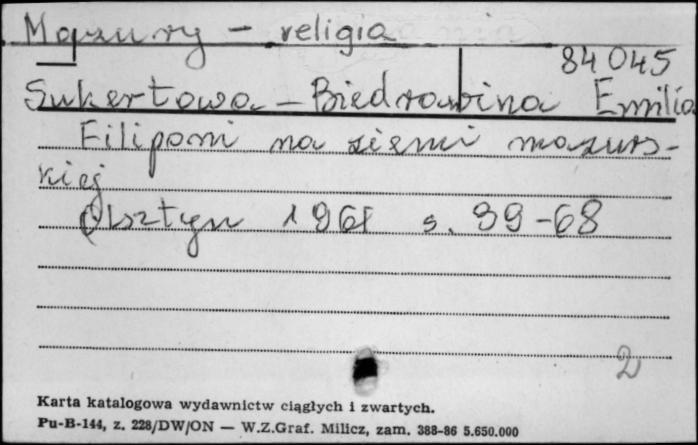 Mazury - religia
84045
Sukertowa - Biedrawina Emilia
Filiponi na ziemi mazurs-
kiej
Olsztyn 1961 s. 39-68
2
Karta katalogowa wydawnictw ciągłych i zwartych.
Pu-B-144, z. 228/DW/ON — W.Z.Graf. Milicz, zam. 388-86 5.650.000